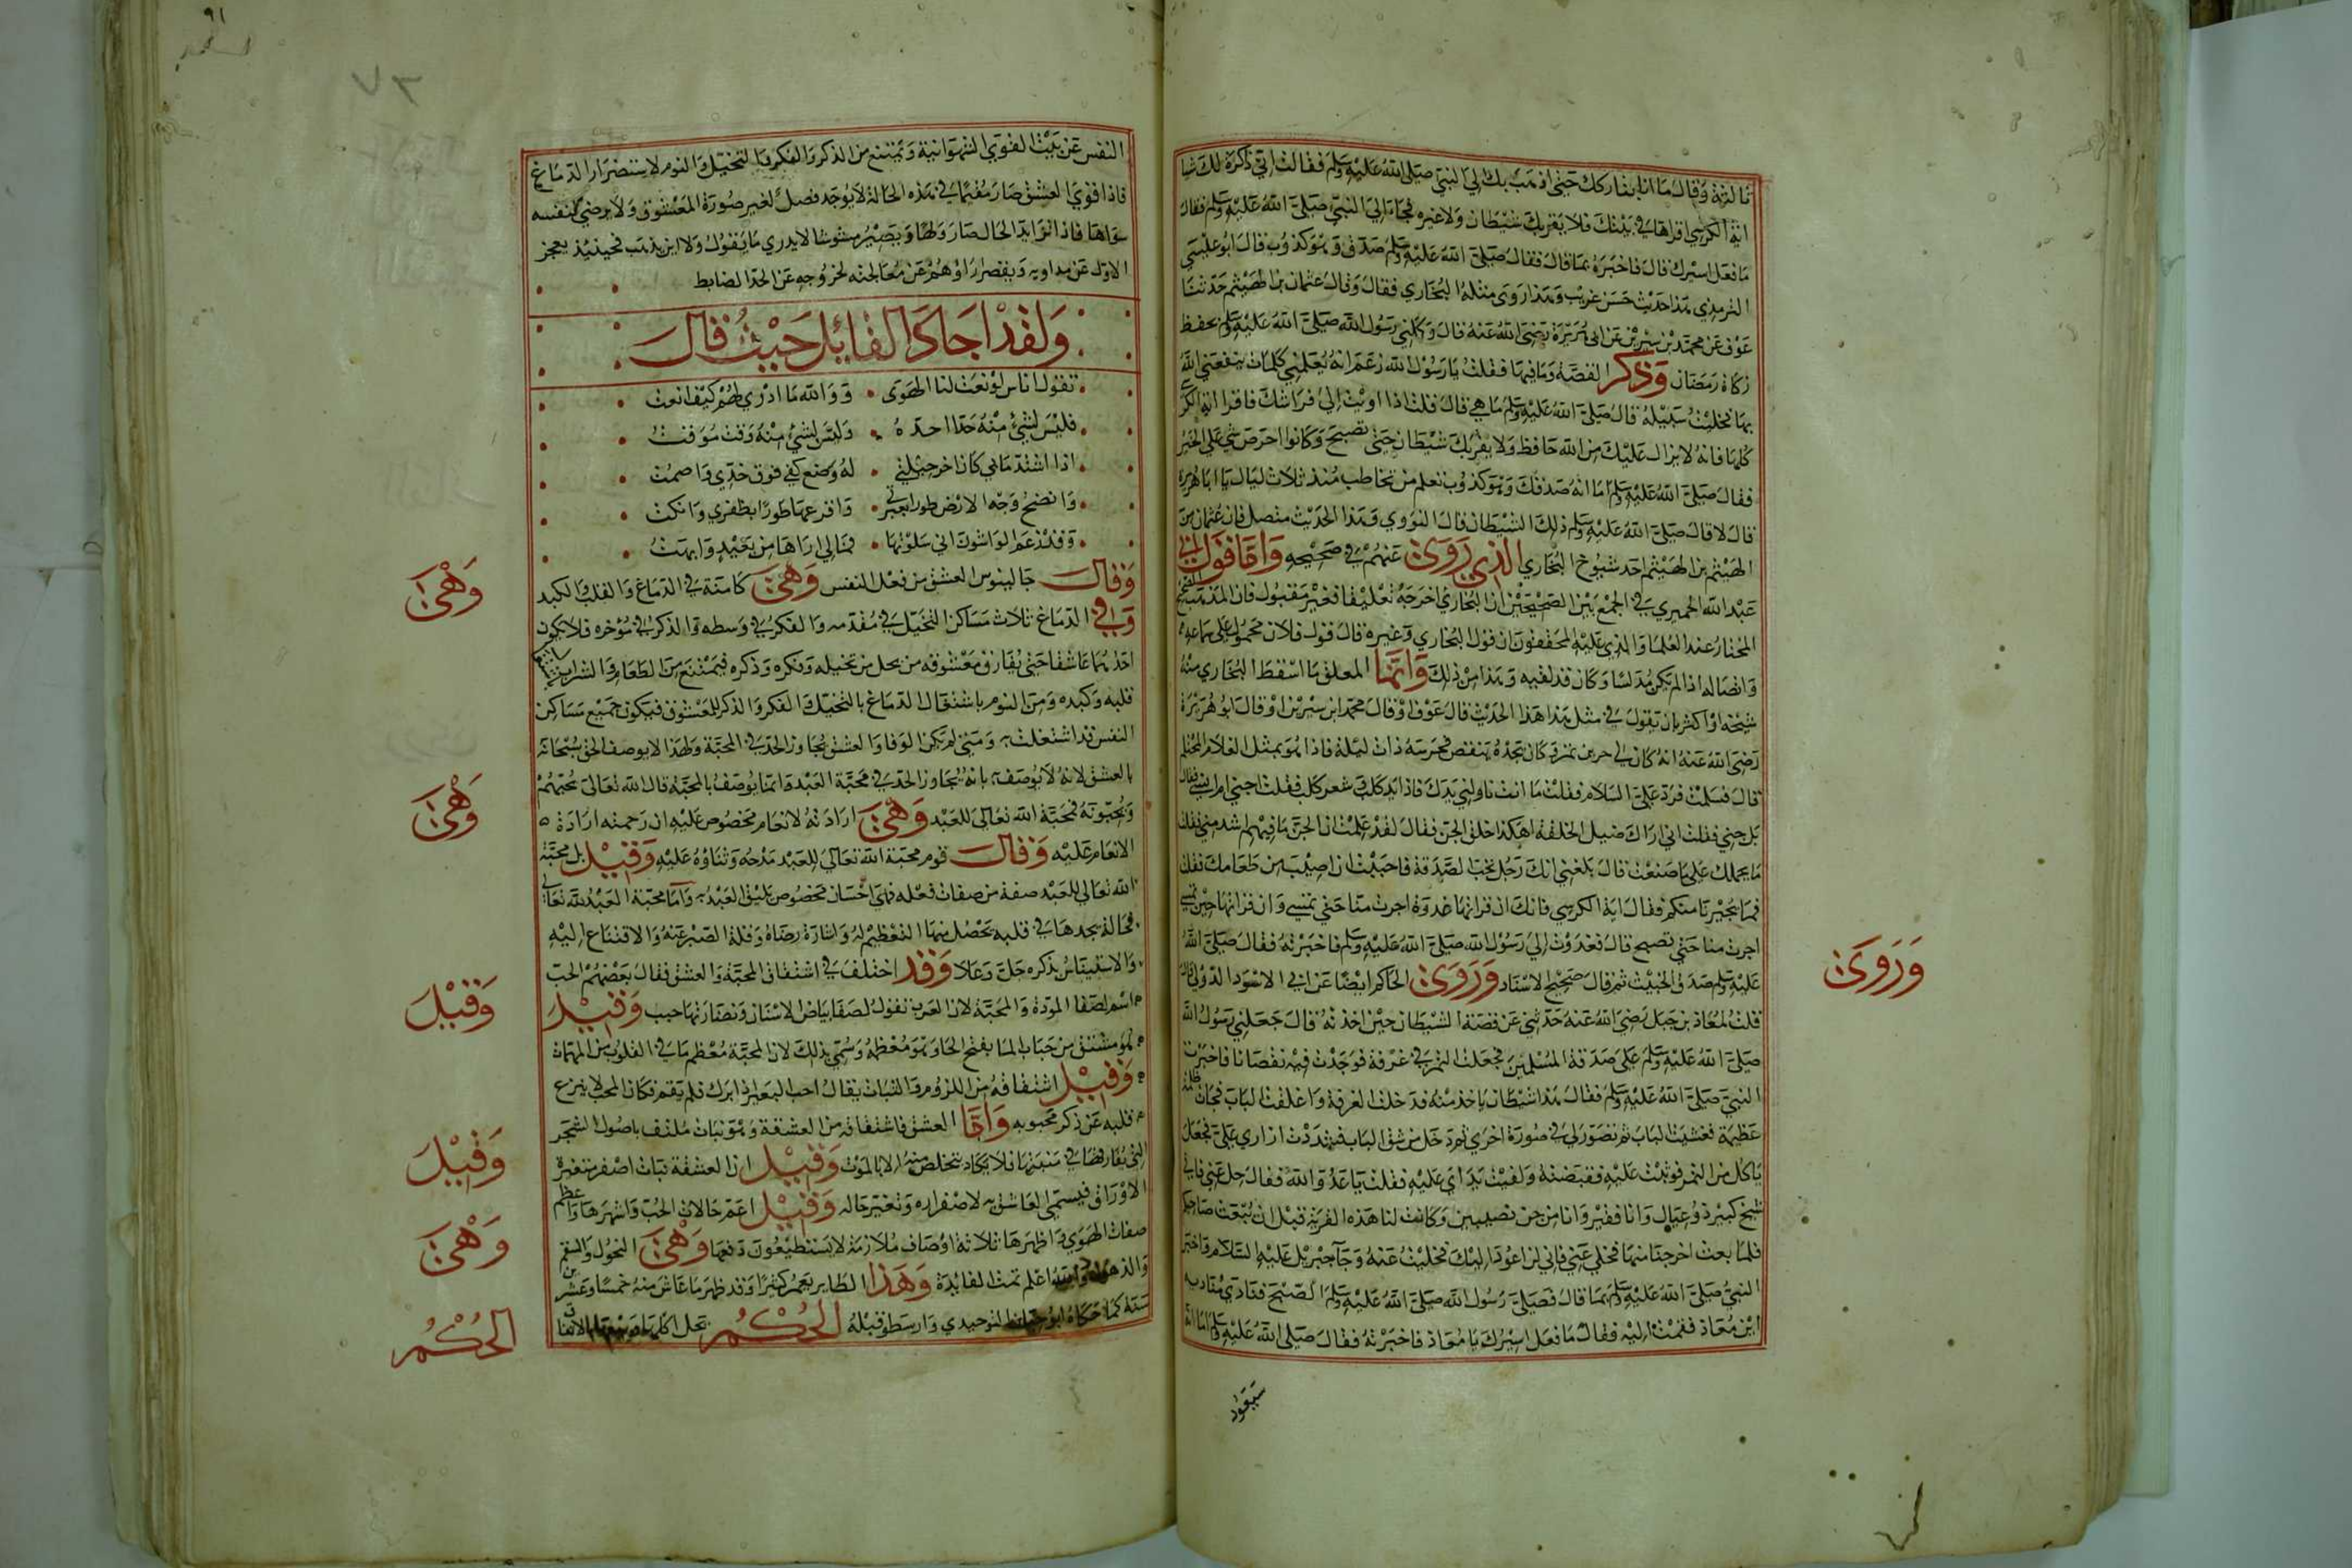 ثالثة وقال ما انا بتاركك حتى اذهب بك الى النبي صلى الله عليه وسلم فقالت اني ذاكرة لك شيا
اية الكرسي اقراها في بيتك فلا يقربك شيطان ولا غيره فجاء الى النبي صلى الله عليه وسلم فقال
ما فعل اسيرك قال فاخبره بما قال فقال صلى الله عليه وسلم صدق وهو كذوب قال ابو عيسى
الترمذي هذا حديث حسن غريب وهذا روى مثله البخاري فقال وقال عثمان بن الهيثم حدثنا
عوف عن محمد بن سيرين عن ابي هريرة رضي الله عنه قال وكلني رسول الله صلى الله عليه وسلم بحفظ
زكاة رمضان وذكر القصة وما فيها فقلت يا رسول الله زعم انه يعلمني كلمات ينفعني الله
بها فخليت سبيله قال صلى الله عليه وسلم ما هي قال قلت اذا اويت الى فراشك فاقرا اية الكرسي
كلها فانه لا يزال عليك من الله حافظ ولا يقربك شيطان حتى تصبح وكانوا احرص شي على الخير
فقال صلى الله عليه وسلم اما انه صدقك وهو كذوب تعلم من تخاطب منذ ثلاث ليال يا ابا هريرة
قال لا قال صلى الله عليه وسلم ذلك الشيطان قال النووي وهذا الحديث متصل فان عثمان بن
الهيثم بن الهيثم احد شيوخ البخاري الذي روى عنهم في صحيحه واما قول
عبد الله الحميري في الجمع بين الصحيحين ان البخاري اخرجه تعليقا فغير مقبول فان المذهب
المختار عند العلما والذي عليه المحققون ان قول البخاري وغيره قال قول فلان محمول على سماعه
واتصاله اذا لم يكن مدلسا وكان قد لقيه وهذا من ذلك وانما المعلق ما اسقط البخاري منه
شيخه او اكثر بان يقول في مثل هذا هذا الحديث قال عوف او قال محمد ابن سيرين او قال ابو هريرة
رضي الله عنه انه كان في جرين تمر وكان يجده ينقص فحرسه ذات ليلة فاذا هو بمثل الغلام المحتلم
قال فسلمت فرد علي السلام فقلت ما انت ناولني يدك فاذا يد كلب وشعر كلب فقلت اجني ام انسي فقال
بل جني فقلت اني اراك ضيل الخلقة اهكذا خلق الجن فقال لقد علمت ان الجن ما فيهم اشد مني فقلت
ما يحملك على ما صنعت قال بلغني انك رجل تحب الصدقة فاحببت ان اصيب من طعامك فقلت
فما يجيرنا منكم فقال اية الكرسي فانك ان قراتها غدوة اجرت منا حتى تمسي وان قراتها حين تمسي
اجرت منا حتى تصبح قال فغدوت الى رسول الله صلى الله عليه وسلم فاخبرته فقال صلى الله
عليه وسلم صدق الخبيث ثم قال صحيح الاسناد وروى الحاكم ايضا عن ابي الاسود الدؤلي قال
وروى
قلت لمعاذ بن جبل رضي الله عنه حدثني عن قصة الشيطان حين اخذته قال جعلني رسول الله
صلى الله عليه وسلم على صدقة المسلمين فجعلت التمر في غرفة فوجدت فيه نقصانا فاخبرت
النبي صلى الله عليه وسلم فقال هذا شيطان ياخذ منه فدخلت الغرفة واغلقت الباب فجات ظلمة
عظيمة فغشيت الباب ثم تصور لي في صورة اخرى ثم دخل من شق الباب فشددت ازاري علي فجعل
ياكل من التمر فوثبت عليه فقبضته ولقيت يداي عليه فقلت يا عدو الله فقال خل عني فاني
شيخ كبير ذو عيال وانا فقير وانا من جن نصيبين وكانت لنا هذه القرية قبل ان يبعث صاحبكم
فلما بعث اخرجنا منها فخلي عني فاني لن اعود اليك فخليت عنه وجاء جبريل عليه السلام فاخبر
النبي صلى الله عليه وسلم بما قال فصلى رسول الله صلى الله عليه وسلم الصبح فنادى مناديه
اين معاذ فقمت اليه فقال ما فعل اسيرك يا معاذ فاخبرته فقال صلى الله عليه وسلم اما انه
سيعود
٩١
٧٣
النفس عن تلبيث القوي الشهوانية ويمتنع من الذكر والفكر والتخيل والنوم لاستضرار الدماغ
فاذا قوي العشق صار مقيما في هذه الحالة لا يوجد فصل لغير صورة المعشوق ولا يرضي لنفسه
سواها فاذا تزايد الحال صار ولها ويصير مشوشا لا يدري ما يقول ولا اين يذهب فحينئذ يعجز
الاول عن مداويه ويقصر اوهم عن معالجته لخروجه عن الحد الضابط
ولقد اجاد القائل حيث قال
تقول اناس لو نعت لنا الهوى وو الله ما ادري لهم كيف انعت
فليس لشئ منه حدا احده وليس لشئ منه وقت موقت
اذا اشتد ما بي كان اخر حيلتي له وضع كفي فوق خدي واصمت
وانضح وجه الارض طورا بعبرتي واقرعها طورا بظفري وانكت
وقد زعم الواشون اني سلوتها فما لي اراها من بعيد وابهت
وقال جالينوس العشق من فعل النفس وهي كامنة في الدماغ والقلب والكبد
وهي
وفي الدماغ ثلاث مساكن التخيل في مقدمه والفكر في وسطه والذكر في مؤخره فلا يكون
احد عاشقا حتى يفارق معشوقه من يحل من تخيله وفكره وذكره فيمتنع من الطعام والشراب
قلبه وكبده ومن النوم باشتغال الدماغ بالتخيل والفكر والذكر للمعشوق فيكون جميع مساكن
النفس قد اشتغلت به ومتى لم تكن الوفا والعشق مجاوز الحد في المحبة ولهذا لا يوصف الحق سبحانه
بالعشق لانه لا يوصف بانه يجاوز الحد في محبة العبد وانما يوصف بالمحبة قال الله تعالى يحبهم
ويحبونه فمحبة الله تعالى للعبد وهي ارادته لانعام مخصوص عليه ان رحمته ارادة
وهي
الانعام عليه وقال قوم محبة الله تعالى للعبد مدحه وثناؤه عليه وقيل بل محبة
الله تعالى للعبد صفة من صفات فعله فهي احسان مخصوص يليق العبد به واما محبة العبد لله تعالى
فحالة يجدها في قلبه تحصل منها التعظيم له واشارة رضاه وقلة الصبر عنه والاقتناع اليه
والاستيناس بذكره جل وعلا وقد اختلف في اشتقاق المحبة والعشق فقال بعضهم الحب
اسم لصفا المودة والمحبة لان العرب تقول لصفا بياض الاسنان ونضارتها حبب وقيل
وقيل
هو مشتق من حباب الما بفتح الحا وهو معظمه وسمي بذلك لان المحبة معظم ما في القلوب من المهمات
وقيل اشتقاقه من اللزوم والثبات يقال احب البعير اذا برك فلم يقم فكان المحب لا ينزع
قلبه عن ذكر محبوبه واما العشق فاشتقاقه من العشقة وهو نبات ملتف باصول الشجر
التي يقاربها في منبتها فلا يكاد يتخلص منه الا بالموت وقيل ان العشقة نبات اصفر متغير
وقيل
الاوراق فيسمى العاشق به لاصفراره وتغير حاله وقيل اعم حالات الحب واشهرها واعظم
صفات الهوى واظهرها ثلاثة اوصاف ملازمة لا يستطيعون دفعها وهي النحول والسقم
وهي
والذهول والله اعلم تمت الفايدة وهذا الطاير يعمر كثيرا وقد ظهر ما عاش منه خمسا وعشرين
سنة كما حكاه ابو حيان التوحيدي وارسطو قبله الحكم يحل اكلها
الحكم